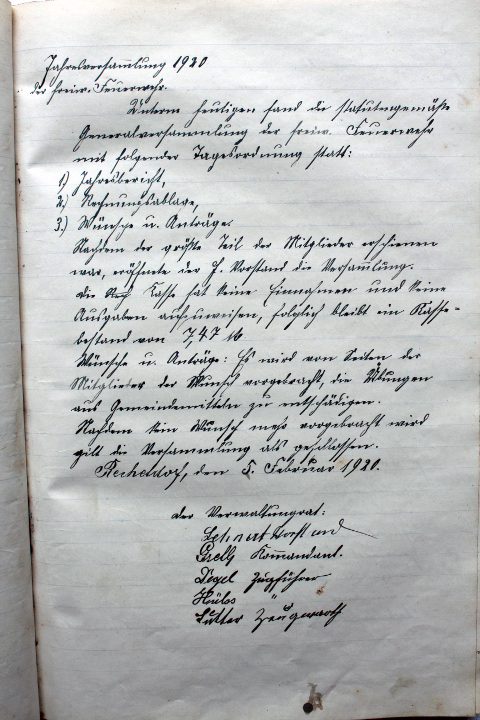 Jahresversammlung 1920
der freiw. Feuerwehr.
Unterm heutigen fand die statutengemäße
Generalversammlung der freiw. Feuerwehr
mit folgender Tagesordnung statt:
1.) Jahresbericht,
2.) Rechnungsablage,
3.) Wünsche u. Anträge.
Nachdem der größte Teil der Mitglieder erschienen
war, eröffnete der H. Vorstand die Versammlung.
Die Kasse hat keine Einnahmen und keine
Ausgaben aufzuweisen, folglich bleibt ein Kasse-
bestand von 7,47 M
Wünsche u. Anträge: Es wird von Seiten der
Mitglieder der Wunsch vorgebracht, die Übungen
aus Gemeindemitteln zu entschädigen.
Nachdem kein Wunsch mehr vorgebracht wird
gilt die Versammlung als geschlossen.
den 5. Februar 1920.
Der Verwaltungsrat:
Vorstand
Kommandant.
Degel Zugführer
"
Sutter Zeugwart